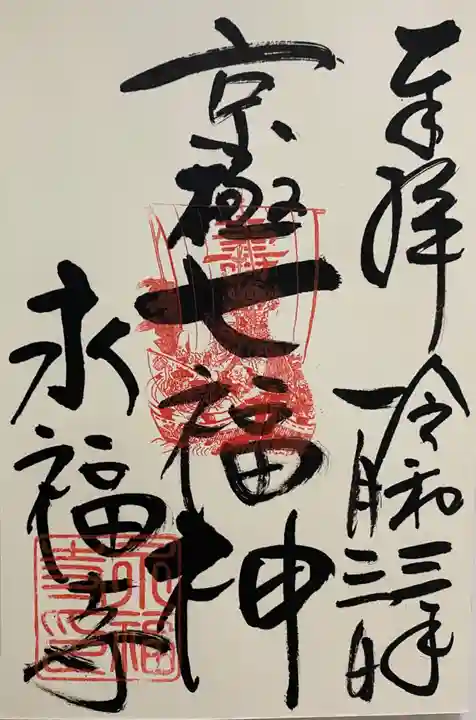 奉拝
令和三年
一月三日
京極七福神
永福寺